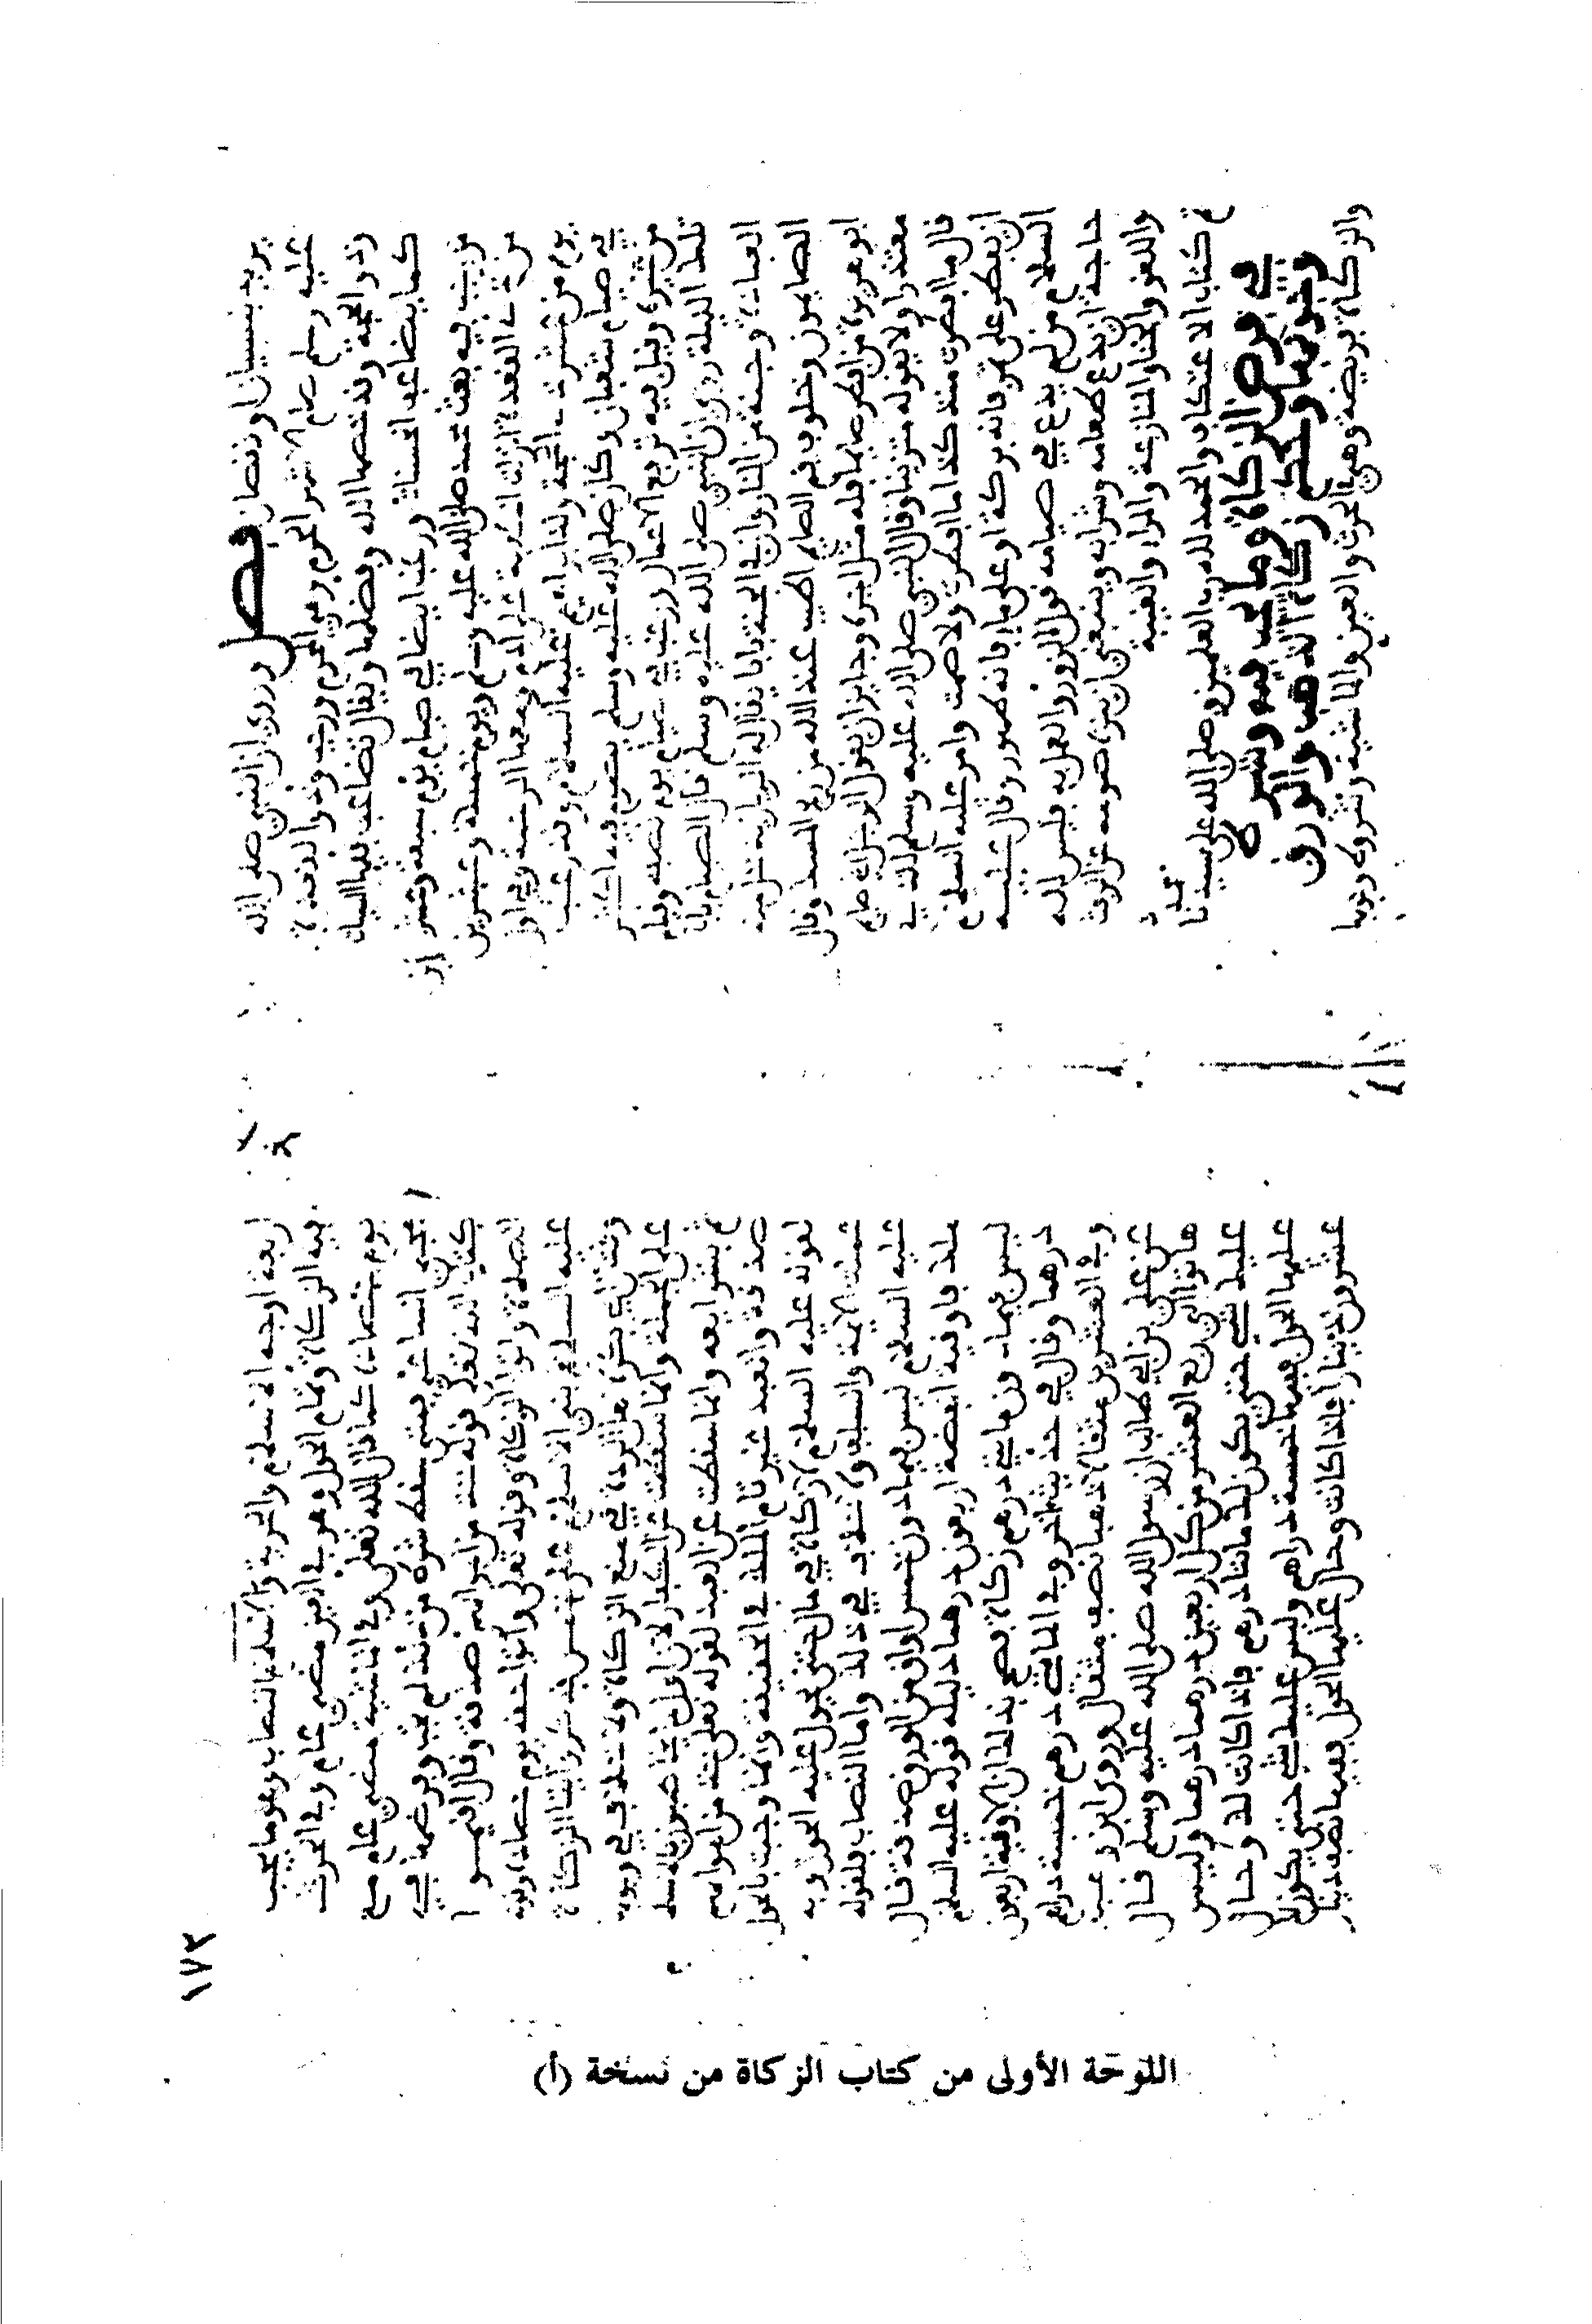 يريد بنسيان او نقصان فصل وروي ان النبي صلى الله
عليه وسلم صام الاشهر الحرم وهي المحرم ورجب وذو القعدة
وذو الحجة وقد خصها الله وفضلها ويقال تضاعف فيها السيئات
كما تضاعف الحسنات ورغب ايضا في صيام يوم سبعة وعشرين
من رجب فيه بعث محمد صلى الله عليه وسلم ويوم خمسة وعشرين
من ذي القعدة انزلت الكعبة على ادم ومعها الرحمة واول
يوم من عشر ذي الحجة ولد ابراهيم عليه السلام وقد رغب
في صيام شعبان وكان صلى الله عليه وسلم يصوم فيه اكثر
من غيره وقيل فيه ترفع الاعمال ورغب في صيام يوم نصفه وقيام
تلك الليلة روي ان النبي صلى الله عليه وسلم قال الصيام باب
العبادة وجنة من النار وان في الجنة بابا يقال له الريان يدخل منه
الصايمون وخلوف فم الصايم اطيب عند الله من ريح المسك وقال
ابو هريرة من افطر صايما فله مثل اجره وجايز ان يقول الرجل اني صايم
معتذرا ولا يقوله متزينا وقال النبي صلى الله عليه وسلم للذي
قال ما افطرت منذ كذا ما افطرت ولا صمت وامر عليه السلام
ان يفطر على تمر فانه بركة او على ماء فانه طهور وقال عليه
السلام من لم يدع في صيامه قول الزور والعمل به فليس لله
حاجة ان يدع طعامه وشرابه وينبغي ان ينزه صومه عن الرفث
واللغو والخنا والمنازعة والمراء والغيبة
تم كتاب الاعتكاف والحمد لله رب العلمين وصلى الله على سيدنا محمد
في فرض الزكاة وما تجب فيه وشر
وجوبها وحكم زكاة الذهب والورق
والزكاة فريضة وهي الحرث والعين والماشية وشروط وجوبها
اربعة اوجه الاسلام والحرية والملك والنصاب وهو ما تجب
فيه الزكاة وتمام الحول وهو في العين مضي عام وفي الحرث
يوم حصاده كما قال الله تعلى وفي الماشية مضي عام مع
مجيء الساعي فمتى سقط شرط من هذه لم تجب وفرضها في
كتاب الله تعلى قوله خذ من اموالهم صدقة وقال اقيموا
الصلاة واتوا الزكاة وقوله تعلى واتوا حقه يوم حصاده وقوله
عليه السلام بني الاسلام على خمس فذكر وايتاء الزكاة
وقتال ابي بكر اهل الردة في منع الزكاة ولا خلاف في وجوبها
على الجملة وانما سقطت عن الكفار لان
بشرايعه وانما سقطت عن العبد لقوله تعلى خذ من اموالهم
صدقة والعبد غير تام الملك في الحقيقة وانما وجبت بالحول
لقوله عليه السلام لا زكاة في مال حتى يحول عليه الحول وبه
عملت الايمة والسلف ولا خلاف في ذلك واما النصاب فلقوله
عليه السلام ليس فيما دون خمس اواق من الورق صدقة قال
ملك فاوقية الفضة اربعون درهما دليله قوله عليه السلام
ليس فيما دون مايتي درهم زكاة فصح بذلك ان الاوقية اربعون
درهما وقال في حديث اخر وفي المايتي درهم خمسة دراهم
وفي العشرين مثقالا ذهبا نصف مثقال وروى ابن وهب
عن علي بن ابي طالب ان رسول الله صلى الله عليه وسلم قال
هاتوا الي ربع العشر من كل اربعين درهما درهما وليس
عليك شيء حتى يكون لك مائتا درهم فاذا كانت لك وحال
عليها الحول ففيها خمسة دراهم وليس عليك شيء حتى يكون لك
عشرون دينارا فاذا كانت وحال عليها الحول ففيها نصف دينار
١٧٢
اللوحة الأولى من كتاب الزكاة من نسخة (أ)